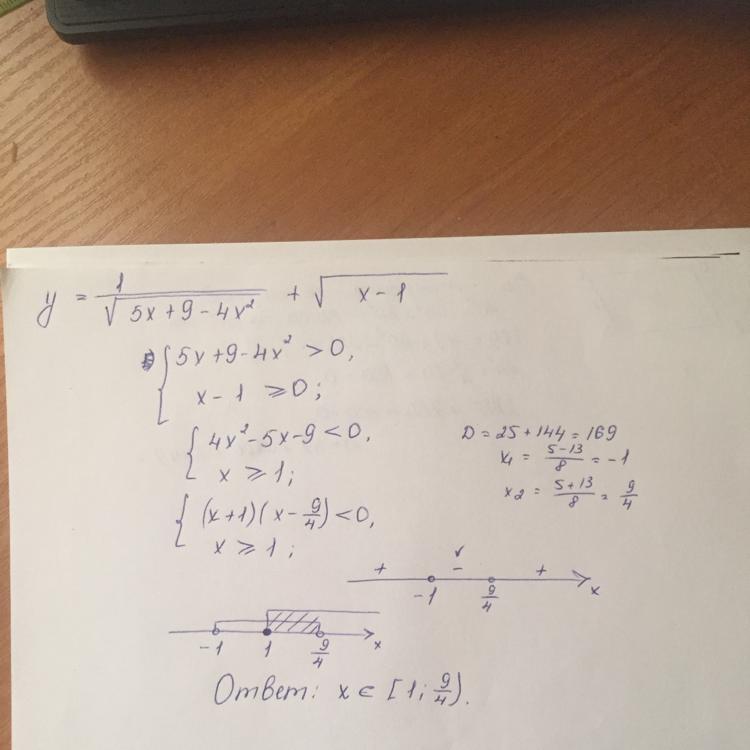 y = 1/√(5x+9-4x²) + √(x-1)
{ 5x+9-4x² >0,
x-1 ⩾0;
{ 4x²-5x-9<0,
x ⩾1;
D=25+144=169
x₁ = (5-13)/8 = -1
x₂ = (5+13)/8 = 9/4
{ (x+1)(x-9/4)<0,
x ⩾1;
+ - +
-1 9/4 x
-1 1 9/4 x
Ответ: x ∈ [1; 9/4).